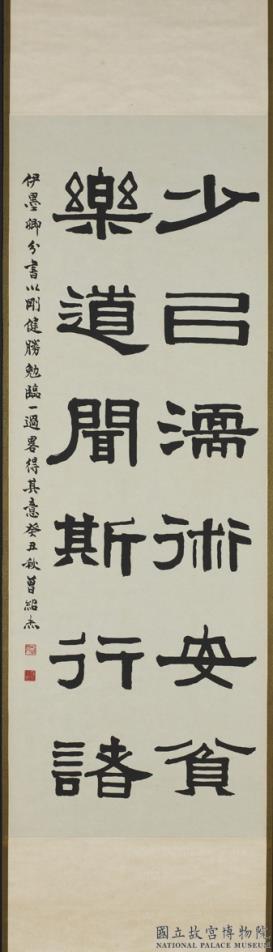 少㠯濡術安貧
樂道聞斯行諸
伊墨卿分書以剛健勝勉臨一過畧得其意癸丑秋曾紹杰
國立故宮博物院
NATIONAL PALACE MUSEUM